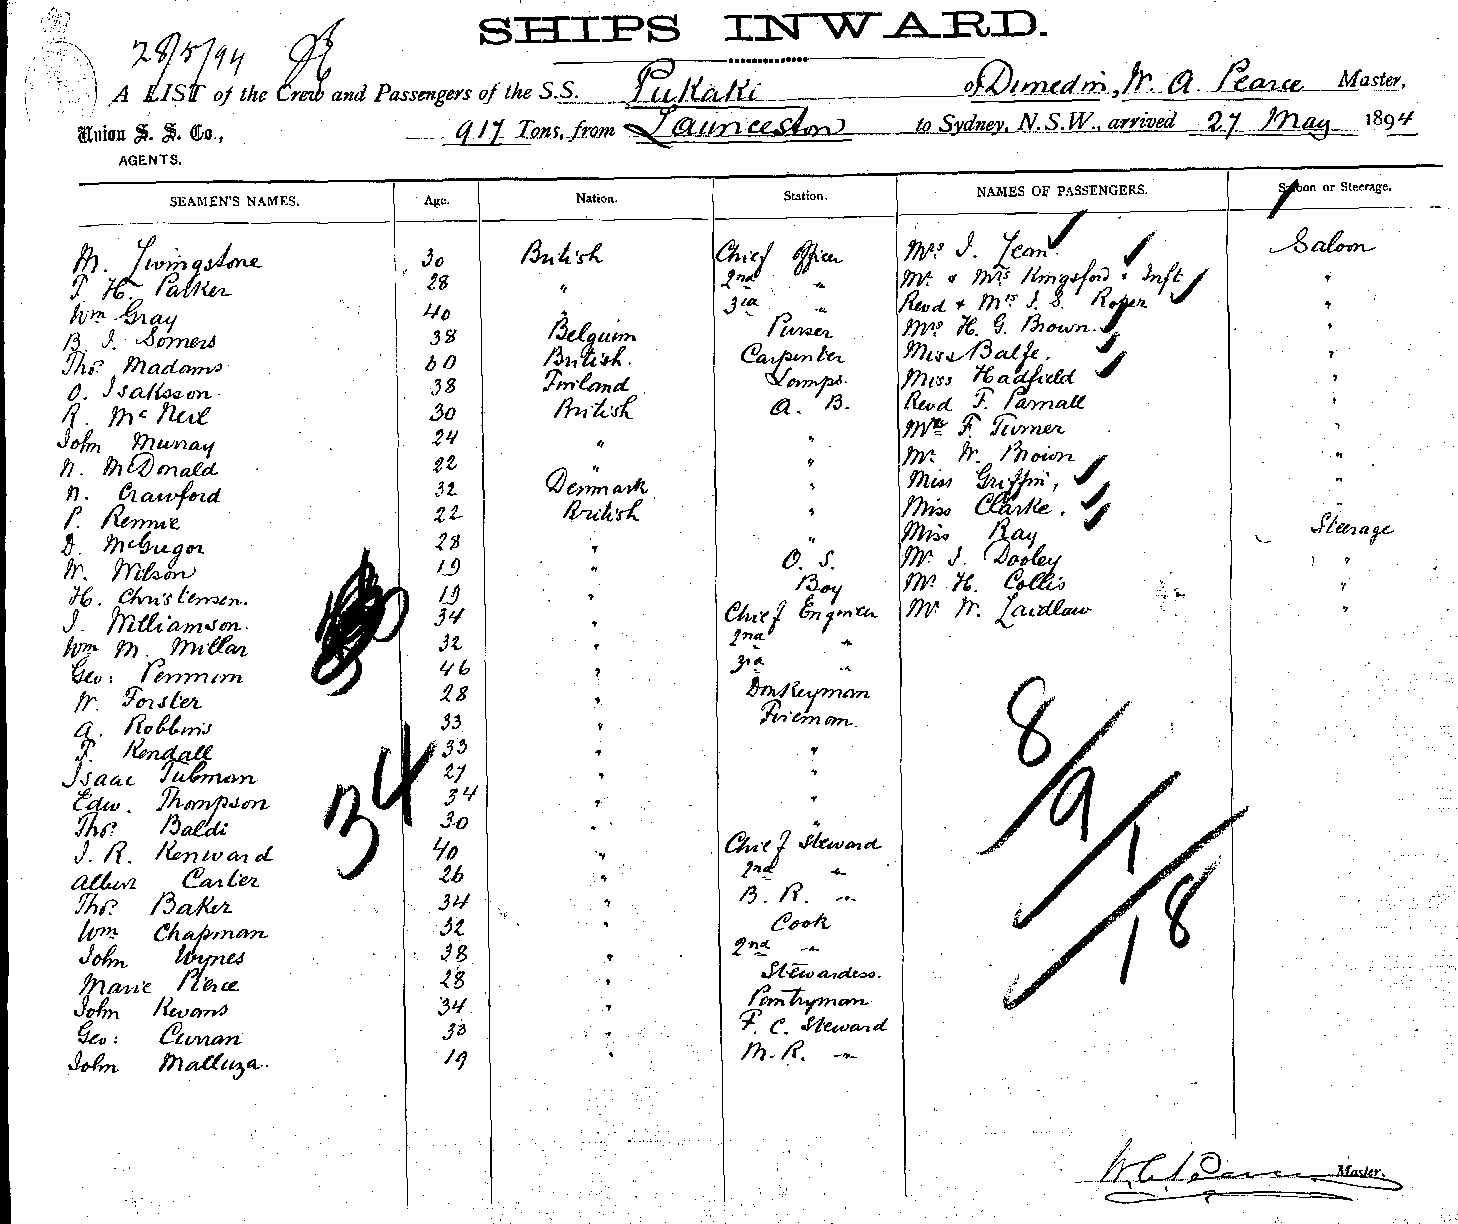 SHIPS INWARD.
28/5/94
A LIST of the Crew and Passengers of the S.S. Pukaki of Dunedin, W. A. Pearce Master,
Union S. S. Co., 917 Tons, from Launceston to Sydney, N.S.W., arrived 27 May 1894
AGENTS.
SEAMEN'S NAMES. Age. Nation. Station. NAMES OF PASSENGERS. Saloon or Steerage.
M. Livingstone 30 British Chief Officer Mrs J. Lean Saloon
T. H. Parker 28 " 2nd " Mr & Mrs Kingsford & Inft "
Wm Gray 40 " 3rd " Revd & Mrs J. S. Roper "
B. J. Somers 38 Belguim Purser Mrs H. G. Brown "
Thos Madams 60 British. Carpenter Miss Balfe. "
O. Isaksson 38 Finland Lamps. Miss Hadfield "
R. McNeil 30 British A. B. Revd F. Parnall "
John Murray 24 " " F. Turner "
N. McDonald 22 " " Mr W. Brown "
N. Crawford 32 Denmark " Miss Griffin, "
P. Rennie 22 British " Miss Clarke. "
D. McGregor 28 " " Miss Ray Steerage
W. Wilson 19 " O. S. Mr J. Dooley "
H. Christensen. 19 " Boy Mr H. Collis "
J. Williamson. 34 " Chief Engineer Mr W. Laidlaw "
Wm M. Millar 32 " 2nd "
Geo: 46 " 3rd "
W. Forster 28 " Donkeyman
A. Robbins 33 " Fireman
F. Kendall 33 " "
Isaac Tubman 27 " "
Edw. Thompson 34 " "
Thos Baldi 30 " "
J. R. Kenward 40 " Chief Steward
Albert Carter 26 " 2nd "
Thos Baker 34 " B. R. "
Wm Chapman 32 " Cook
John Wynes 38 " 2nd "
Marie Pierce 28 " Stewardess.
John Kevans 34 " Pantryman
Geo: Curran 33 " F. C. Steward
John Malluza. 19 " M. R. "
34
8/9/1/18
W. A. Pearce Master.